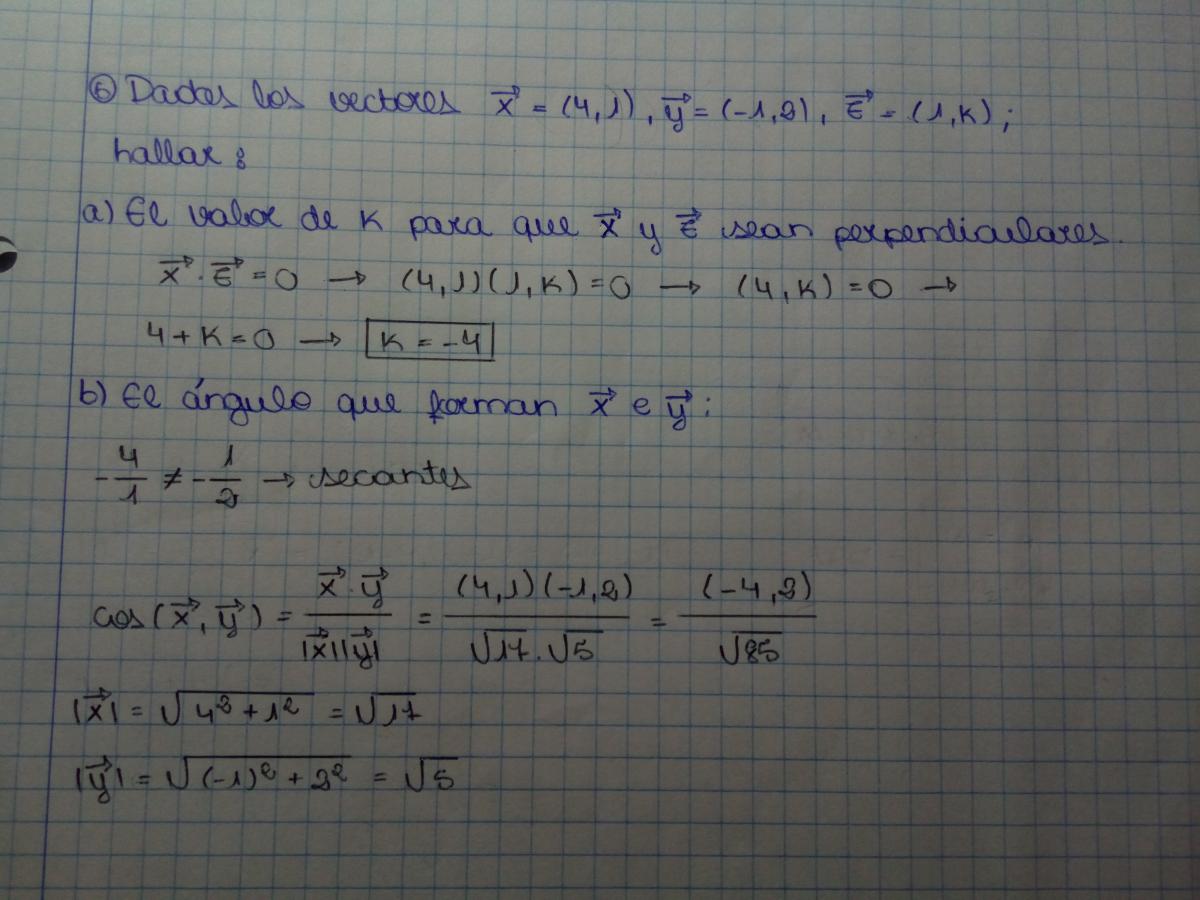 ⑥ Dados los vectores x⃗ = (4,1), y⃗ = (-1,2), z⃗ = (1,k);
hallar:
a) El valor de k para que x⃗ y z⃗ sean perpendiculares.
x⃗ · z⃗ = 0 → (4,1)(1,k) = 0 → (4,k) = 0 →
4 + k = 0 → k = -4
b) El ángulo que forman x⃗ e y⃗:
-4/1 ≠ -1/2 → secantes
cos(x⃗, y⃗) = x⃗ · y⃗ / |x⃗||y⃗| = (4,1)(-1,2) / √17 · √5 = (-4,2) / √85
|x⃗| = √(4² + 1²) = √17
|y⃗| = √((-1)² + 2²) = √5